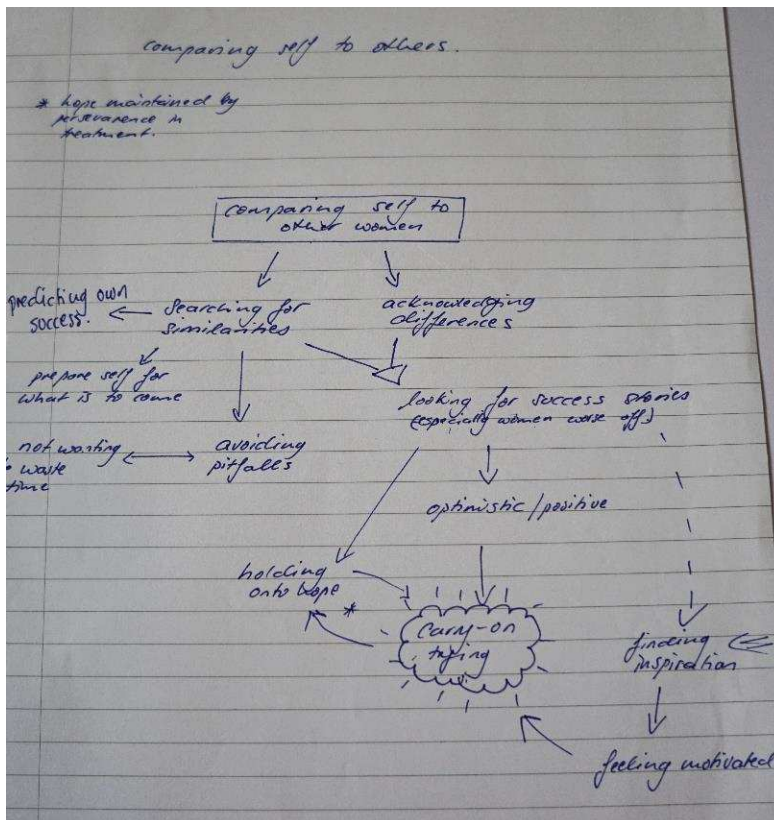 comparing self to others.
* hope maintained by
perseverence in
treatment.
comparing self to
other women
predicting own
success.
searching for
similarities
acknowledging
differences
prepare self for
what is to come
looking for success stories
(especially women worse off)
not wanting
waste
time
avoiding
pitfalls
optimistic/positive
holding
onto hope
*
carry-on
trying
finding
inspiration
feeling motivated